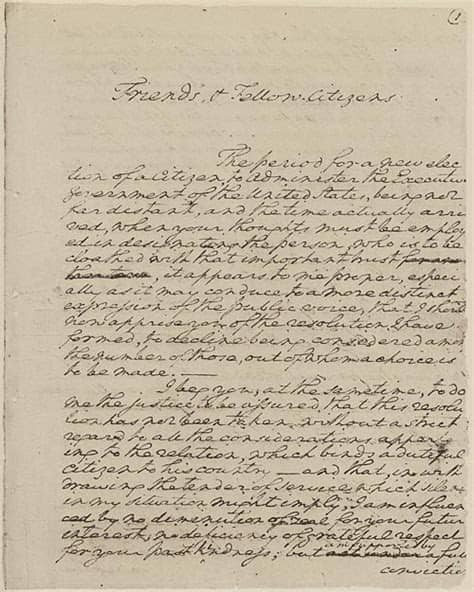 (1
Friends, & Fellow-Citizens
The period for a new elec
tion of a Citizen, to Administer the Executive
Government of the United States, being not
far distant, and the time actually arri
ved, when your thoughts must be employ
ed in designating the person, who is to be
cloathed with that important trust
, it appears to me proper, especi
ally as it may conduce to a more distinct
expression of the public voice, that I should
now apprise you of the resolution I have
formed, to decline being considered among
the number of those, out of whom a choice is
to be made. —
I beg you, at the sametime, to do
me the justice to be assured, that this resolu
tion has not been taken, without a strict
regard to all the considerations appertain
ing to the relation, which binds a dutiful
citizen to his country — and that, in with
drawing the tender of service which silence
in my situation might imply, I am influen
ced by no diminution of zeal for your future
interest, no deficiency of grateful respect
for your past kindness; but am supported by a full
convictio